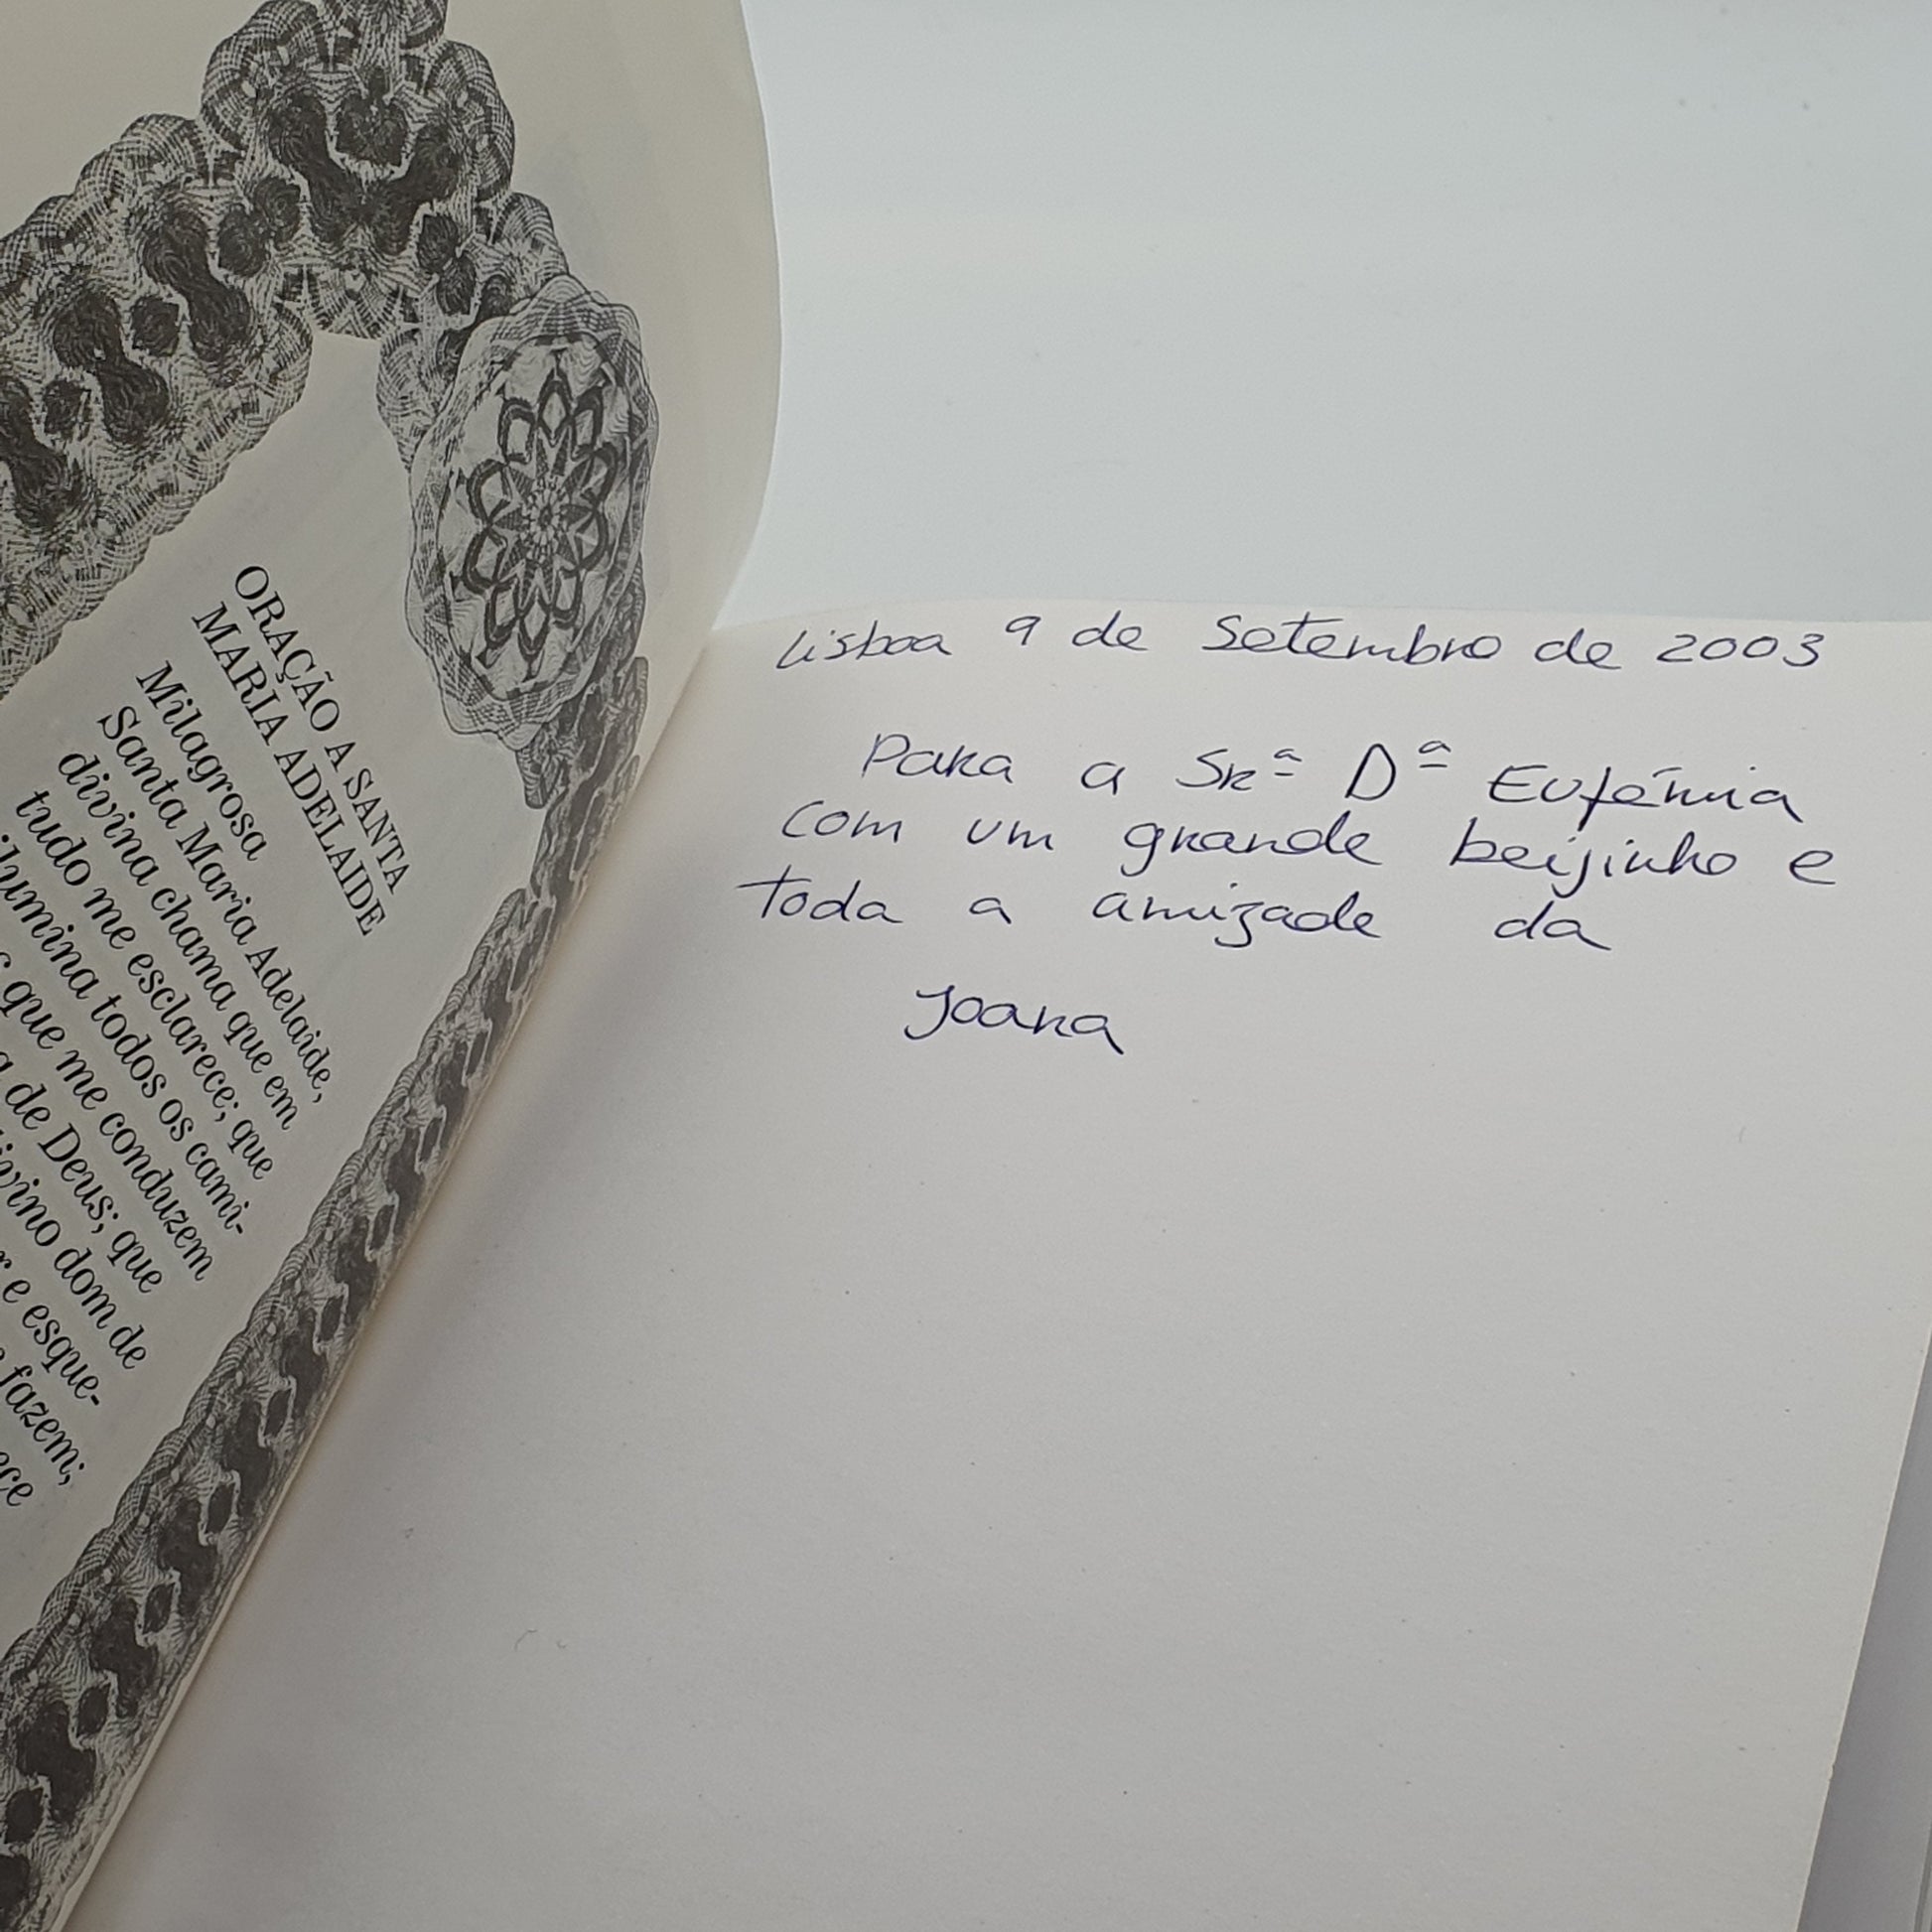 ORAÇÃO A SANTA
MARIA ADELAIDE
Milagrosa
Santa Maria Adelaide,
divina chama que em
tudo me esclarece; que
ilumina todos os cami-
que me conduzem
de Deus; que
divino dom de
e esque-
fazem;
Lisboa 9 de Setembro de 2003
Para a Srª Dª Eufémia
com um grande beijinho e
toda a amizade da
Joana